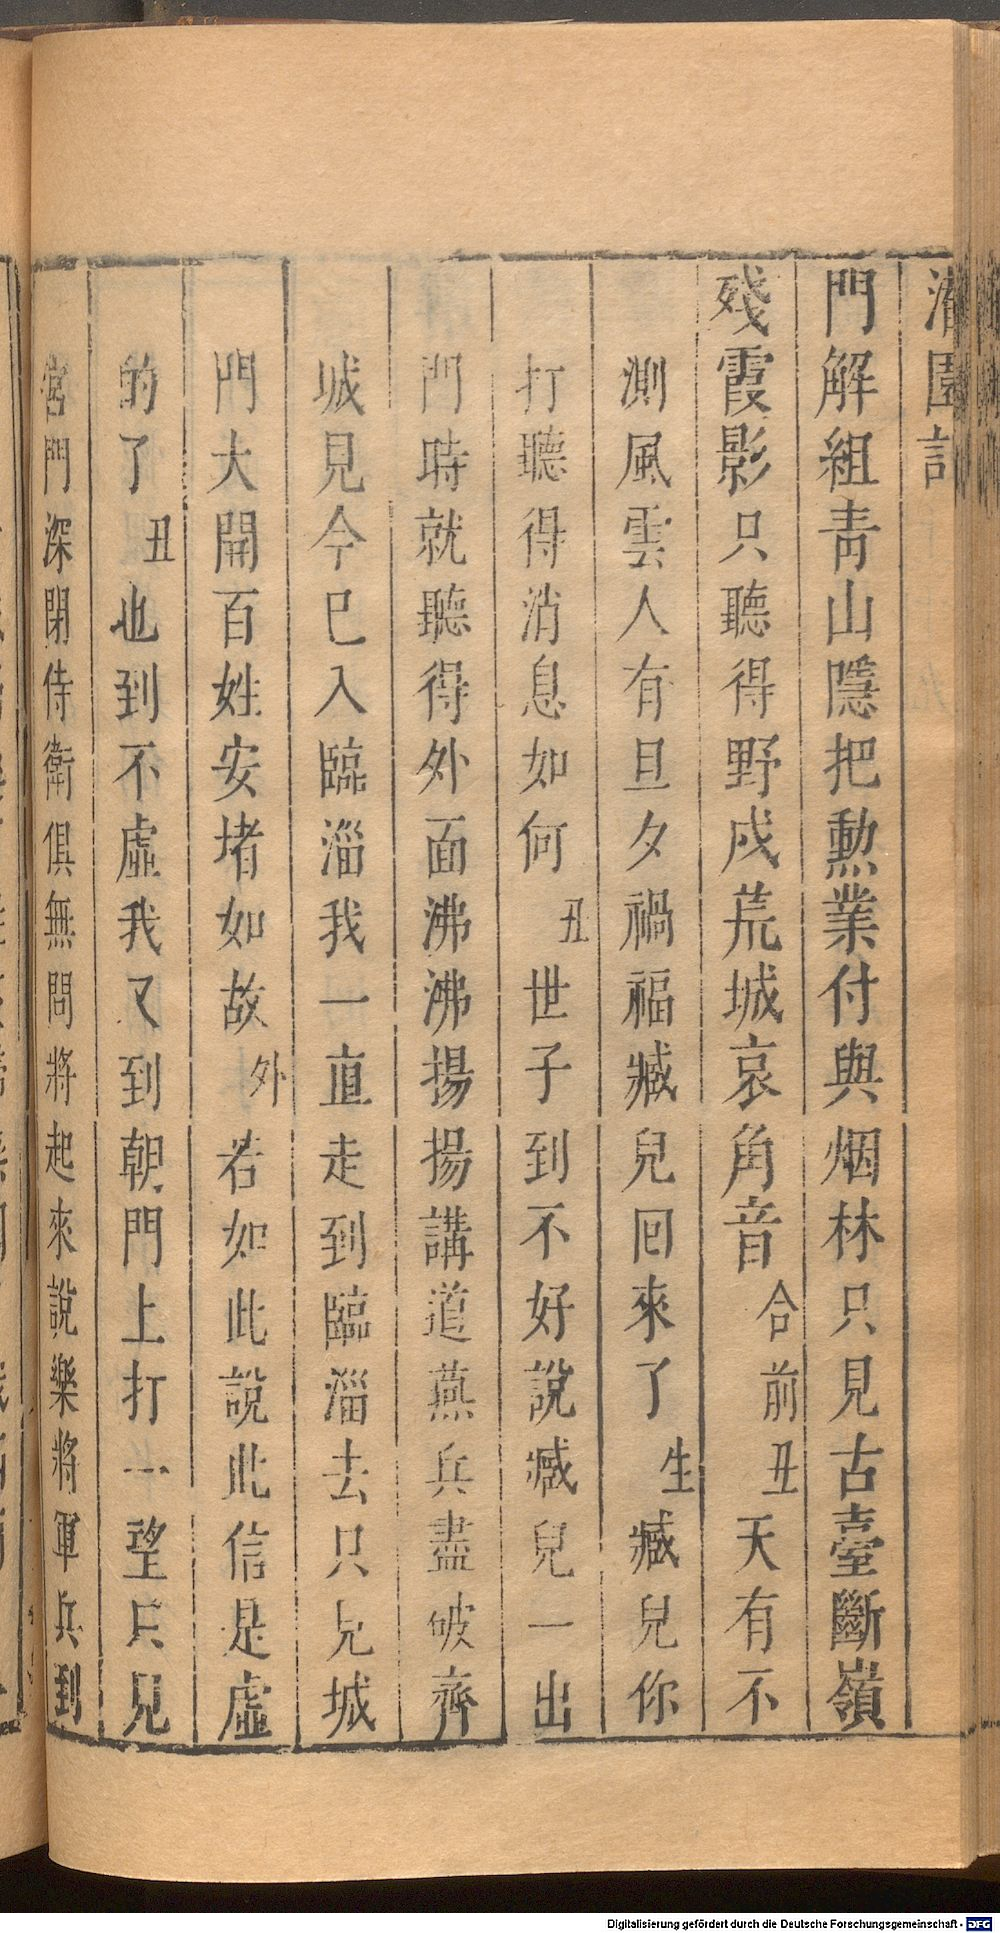 灌園記
門解組靑山隱把勲業付與烟林只見古臺斷嶺
殘霞影只聽得野戍荒城哀角音合前丑天有不
測風雲人有旦夕禍福臧兒回來了生臧兒你
打聽得消息如何丑世子到不好說臧兒一出
門時就聽得外面沸沸揚揚講道燕兵盡破齊
城見今巳入臨淄我一直走到臨淄去只見城
門大開百姓安堵如故外若如此說此信是虛
的了丑也到不虛我又到朝門上打一望只見
宮門深閉侍衛俱無問將起來說樂將軍兵到
Digitalisierung gefördert durch die Deutsche Forschungsgemeinschaft - DFG